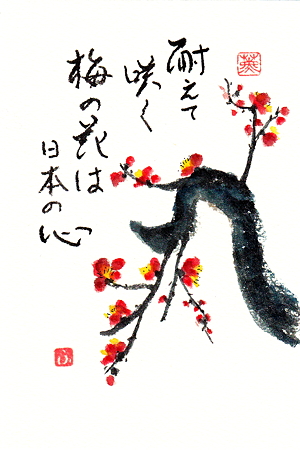 耐えて
咲く
梅の花は
日本の心